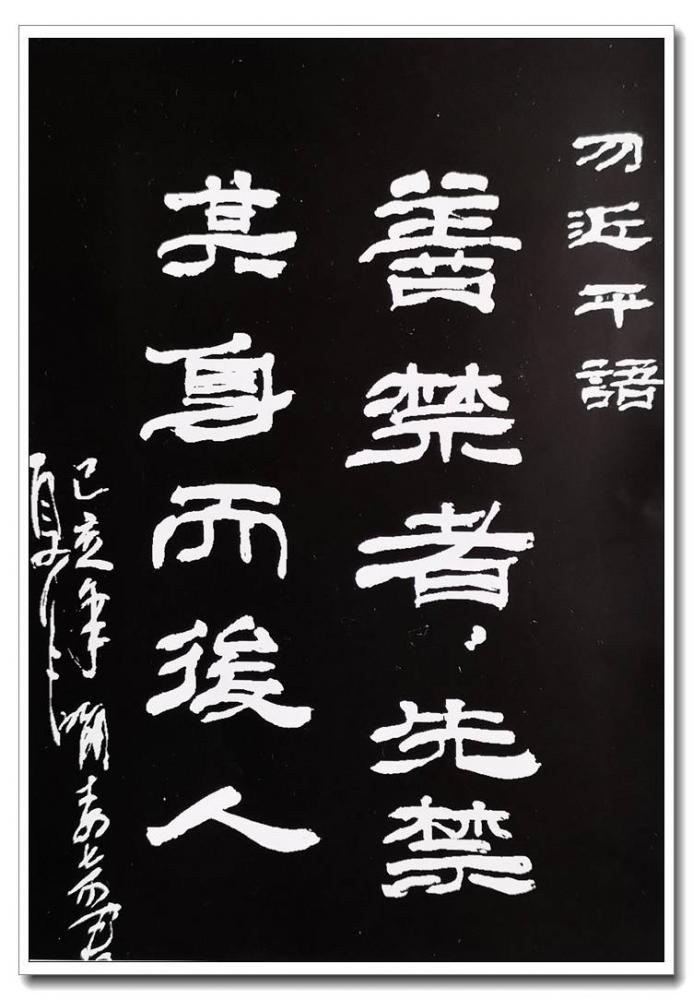 勿近平語
善禁者，先禁
其身而後人
己亥
夏